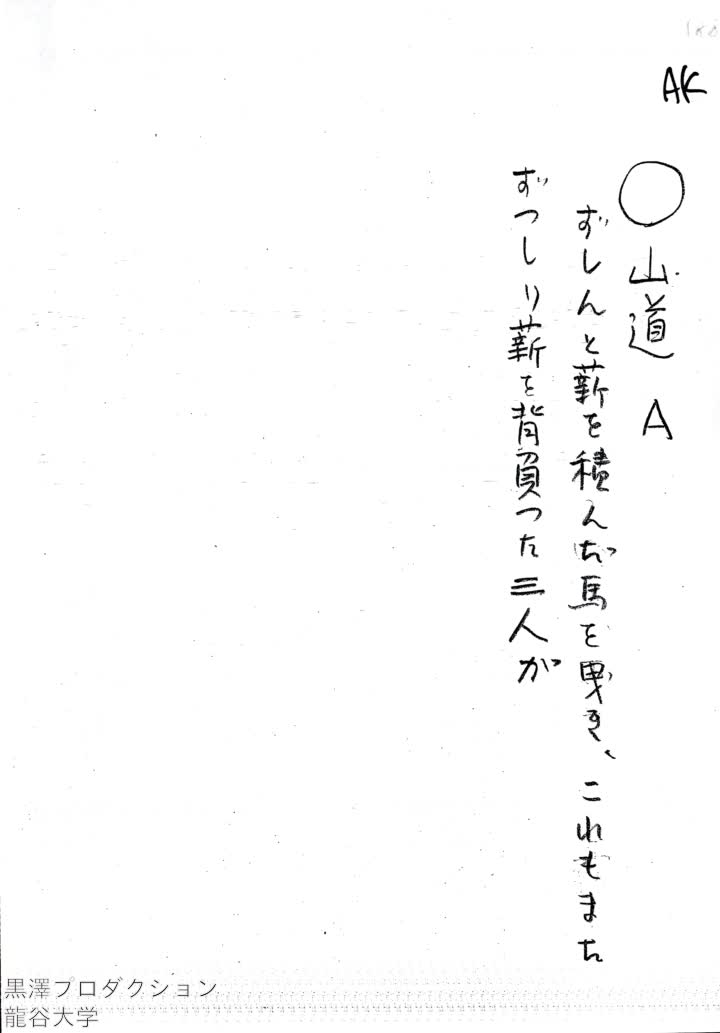 AK
〇山道 A
ずしんと薪を積んだ馬を曳き、これもまた
ずつしり薪を背負つた三人が
黒澤プロダクション
龍谷大学